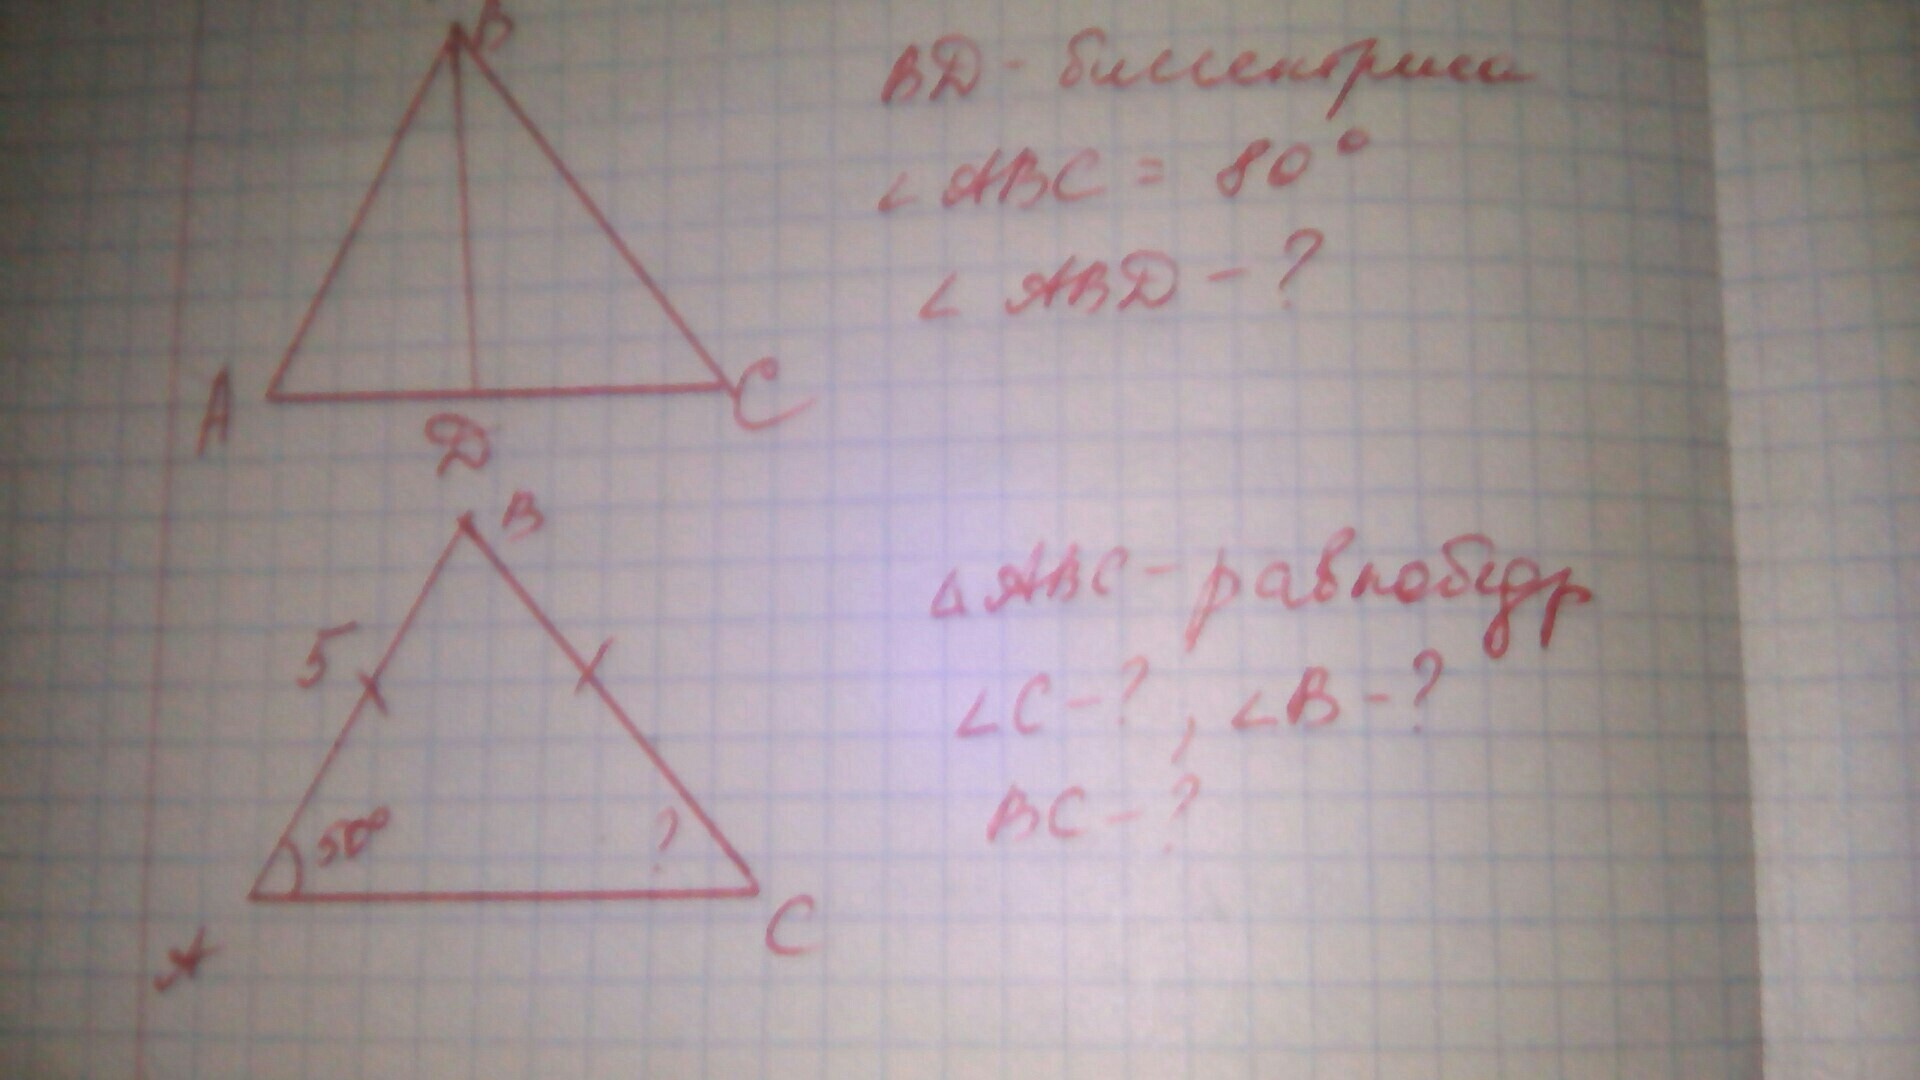 B
BD - биссектриса
∠ABC = 80°
∠ABD - ?
A
D
C
B
5
50°
?
A
C
△ABC - равнобедр
∠C - ?, ∠B - ?
BC - ?